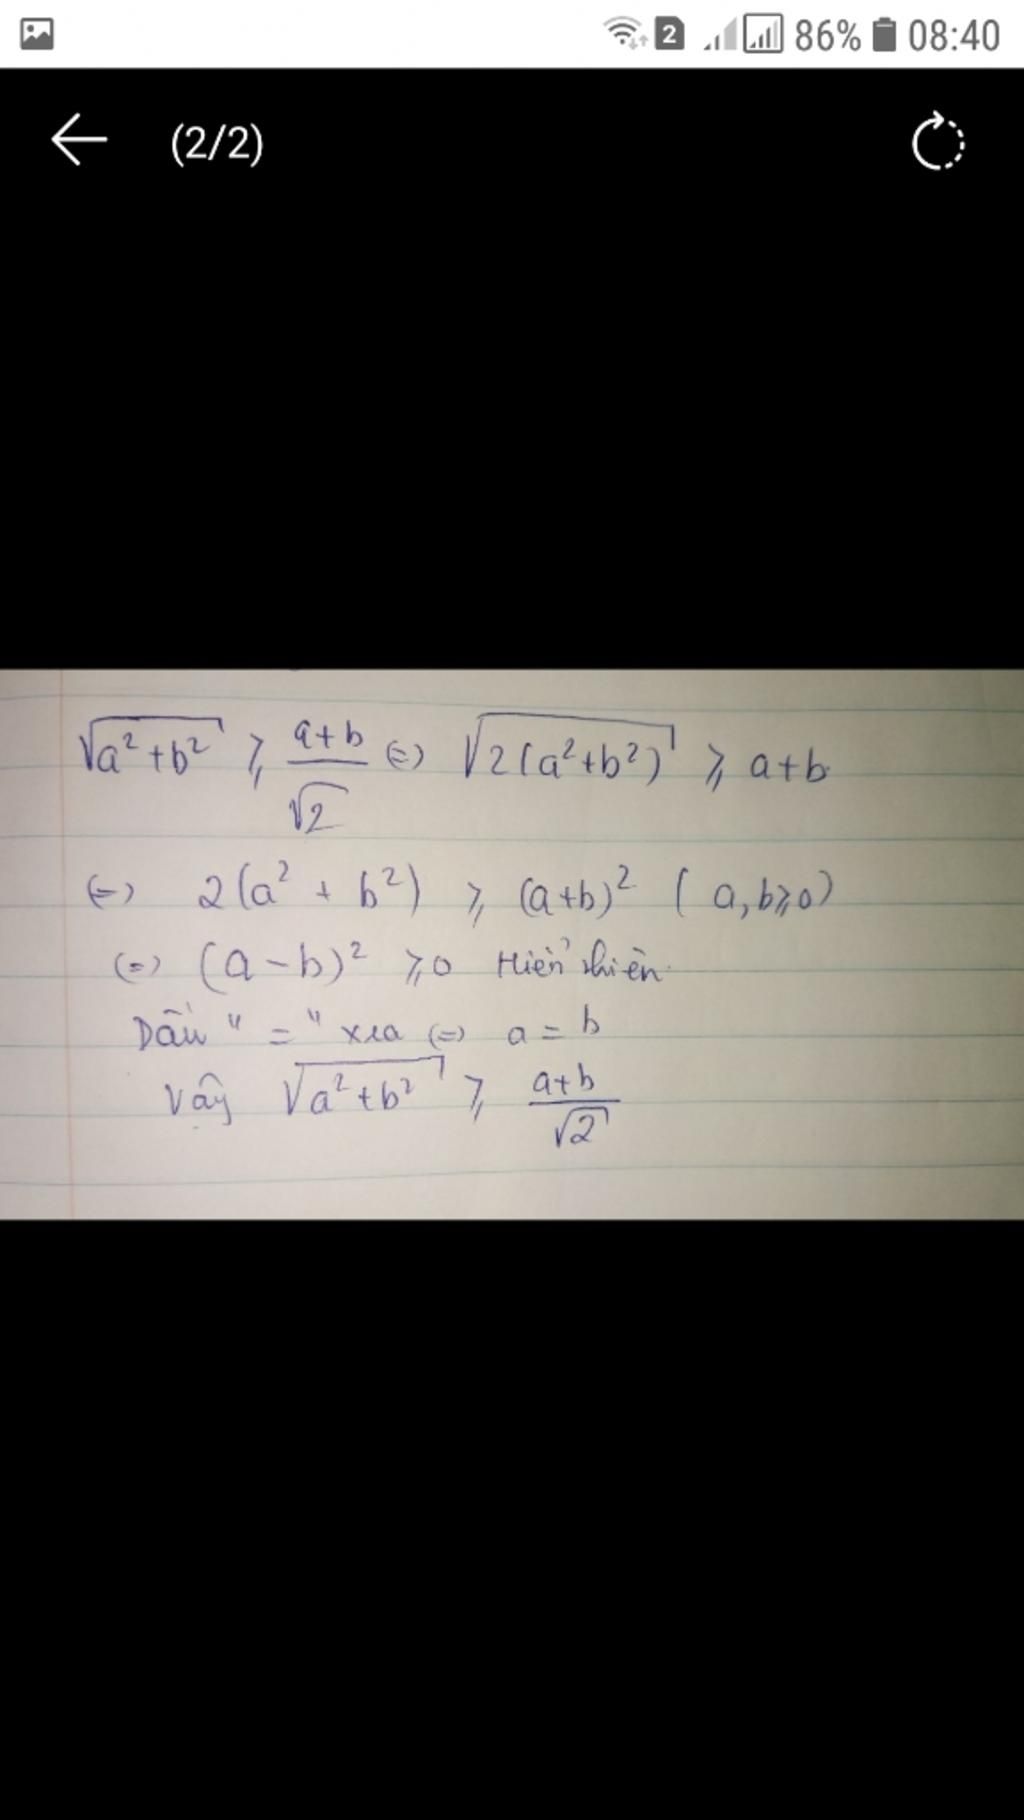 2 86% 08:40
(2/2)
√(a²+b²) ≥ (a+b)/√2 (=) √(2(a²+b²)) ≥ a+b
(=) 2(a² + b²) ≥ (a+b)² ( a,b≥0)
(=) (a-b)² ≥0 Hiển nhiên
Dấu "=" xra (=) a = b
Vậy √(a²+b²) ≥ (a+b)/√2